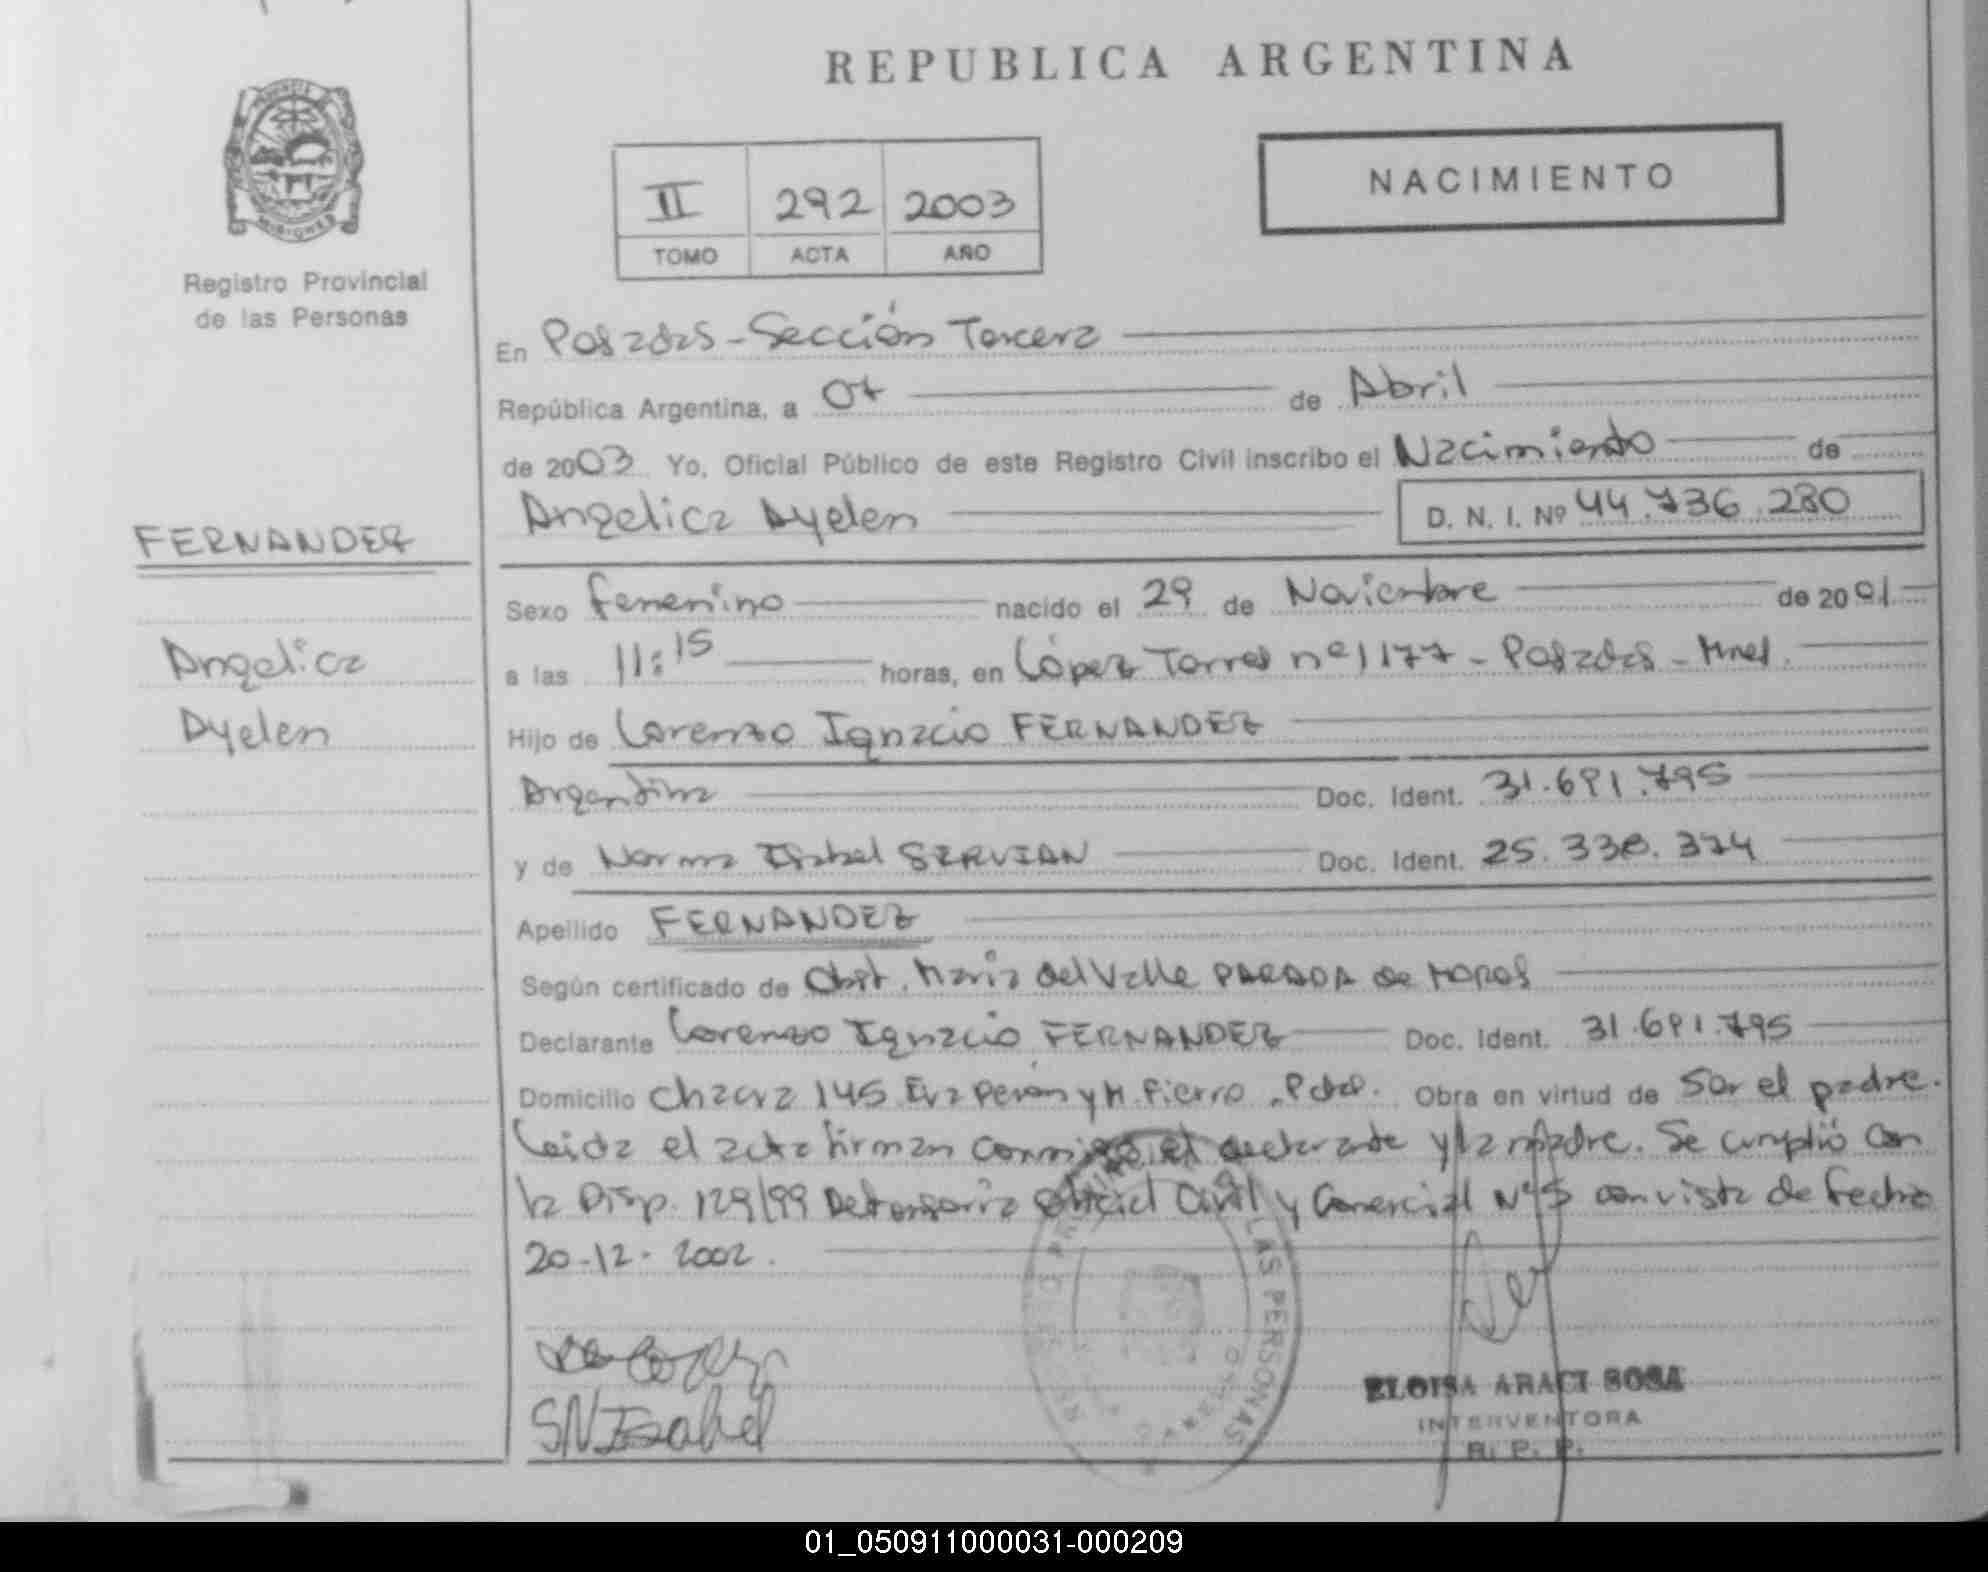 REPUBLICA ARGENTINA
NACIMIENTO
II 292 2003
TOMO ACTA AÑO
PROVINCIA DE MISIONES
Registro Provincial
de las Personas
FERNANDEZ
Angelica
Ayelen
En Posadas - Sección Tercera
República Argentina, a 07 de Abril
de 2003 Yo, Oficial Público de este Registro Civil inscribo el Nacimiento de
Angelica Ayelen D. N. I. Nº 44.736.280
Sexo femenino nacido el 29 de Noviembre de 2001
a las 11:15 horas, en López Torres nº 1177 - Posadas - Mnes.
Hijo de Lorenzo Ignacio FERNANDEZ
Argentina Doc. Ident. 31.691.795
y de Norma Isabel SERVIAN Doc. Ident. 25.338.374
Apellido FERNANDEZ
Según certificado de Obst. Maria del Valle PARADA de
Declarante Lorenzo Ignacio FERNANDEZ Doc. Ident. 31.691.795
Domicilio Chacra 145 Eva Perón y M. Fierro, Pdas. Obra en virtud de Ser el padre.
Leida el acta firman conmigo el declarante y la madre. Se cumplió con
la Disp. 129/99 Defensoria Oficial Civil y Comercial Nº 5 con vista de fecha
20-12-2002.
LAS PERSONAS
SN Isabel
ELOISA ARACI SOSA
INTERVENTORA
R. P. P.
01_050911000031-000209